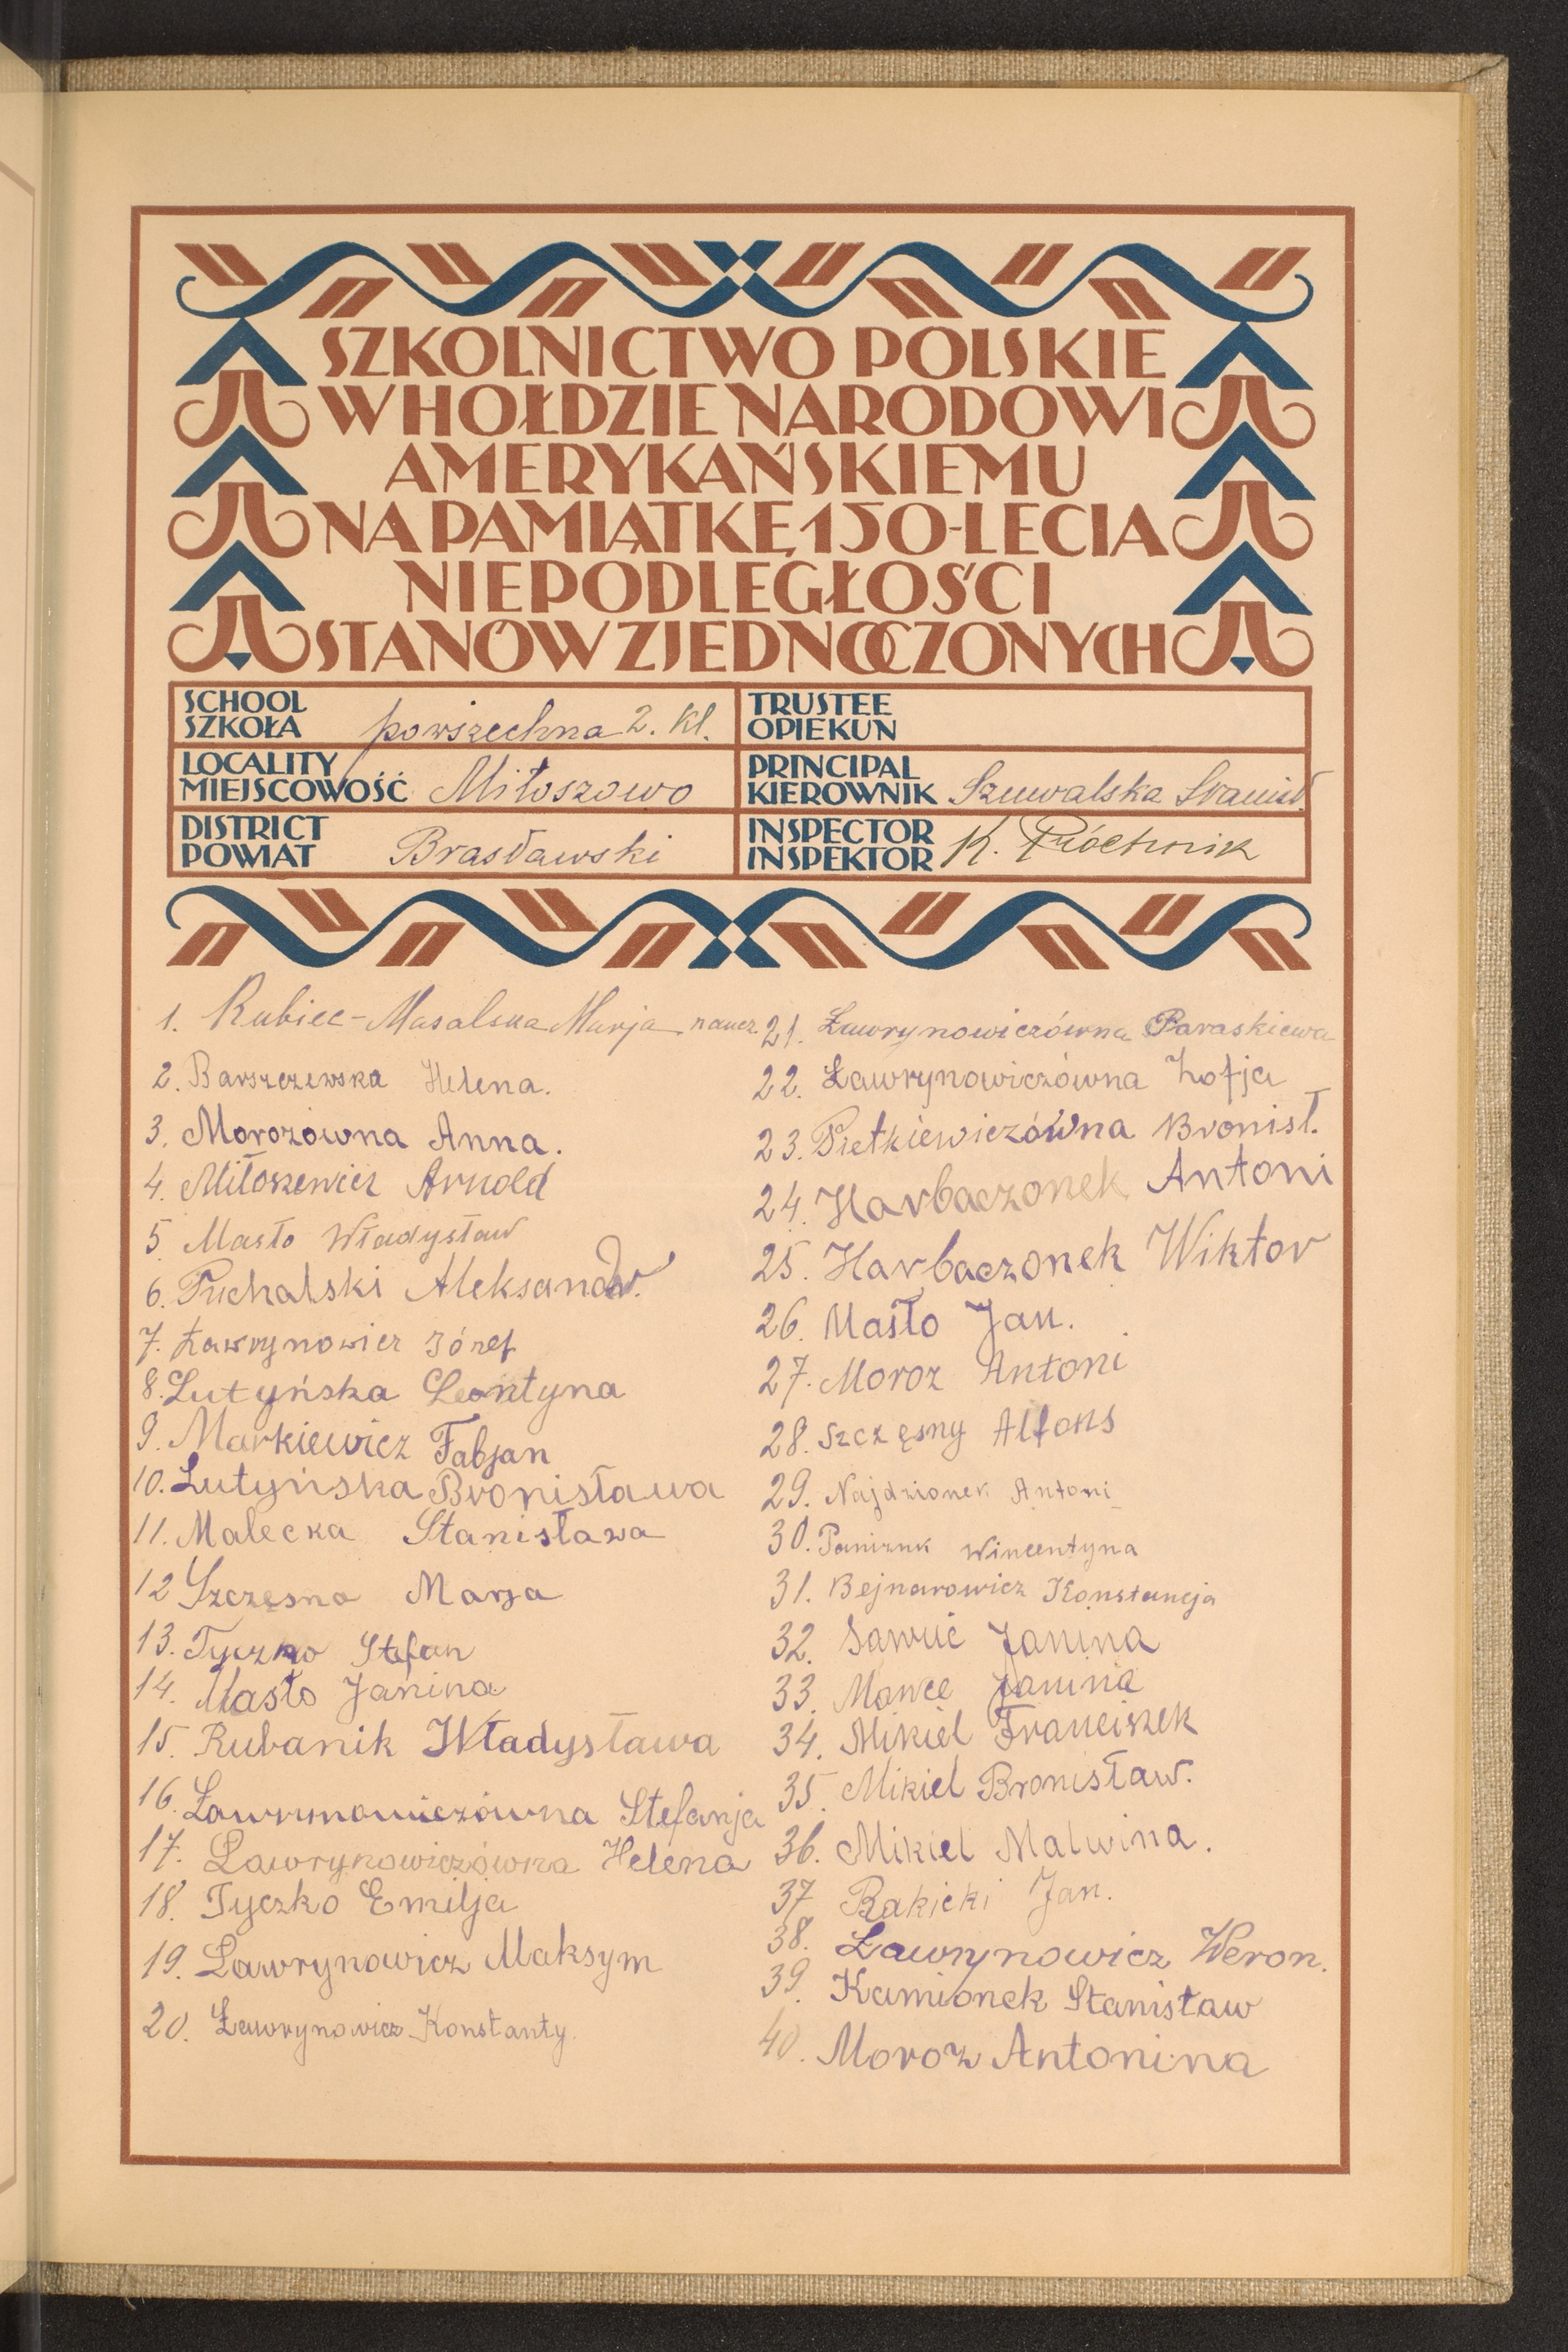 SZKOLNICTWO POLSKIE
W HOŁDZIE NARODOWI
AMERYKAŃSKIEMU
NA PAMIĄTKĘ 150-LECIA
NIEPODLEGŁOŚCI
STANÓW ZJEDNOCZONYCH
SCHOOL
SZKOŁA powszechna 2. kl.
LOCALITY
MIEJSCOWOŚĆ Miłoszowo
DISTRICT
POWIAT Brasławski
TRUSTEE
OPIEKUN
PRINCIPAL
KIEROWNIK Szuwalska Stanisł.
INSPECTOR
INSPEKTOR K. Próchnik
1. Kubiec-Masalska Marja naucz.
2. Barszczewska Helena.
3. Morozówna Anna.
4. Miłoszewicz Arnold
5 Masło Władysław
6. Puchalski Aleksandr.
7. Ławrynowicz Józef
8. Lutyńska Leontyna
9. Markiewicz Fabjan
10. Lutyńska Bronisława
11. Malecka Stanisława
12 Szczęsna Marja
13. Tyczko Stefan
14. Masło Janina
15. Rubanik Władysława
16. Ławrynowiczówna Stefanja
17. Ławrynowiczówna Helena
18. Tyczko Emilja
19. Ławrynowicz Maksym
20. Ławrynowicz Konstanty.
21. Ławrynowiczówna Paraskiewa
22. Ławrynowiczówna Zofja
23. Pietkiewiczówna Bronisł.
24. Harbaczonek Antoni
25. Harbaczonek Wiktor
26. Masło Jan.
27. Moroz Antoni
28. Szczęsny Alfons
29. Najdzionek Antoni
30. Paniznk Wincentyna
31. Bejnarowicz Konstancja
32. Sawuć Janina
33. Janina
34. Mikiel Franciszek
35. Mikiel Bronisław.
36. Mikiel Malwina.
37 Rakicki Jan.
38. Ławrynowicz Weron.
39. Kamionek Stanisław
40. Moroz Antonina